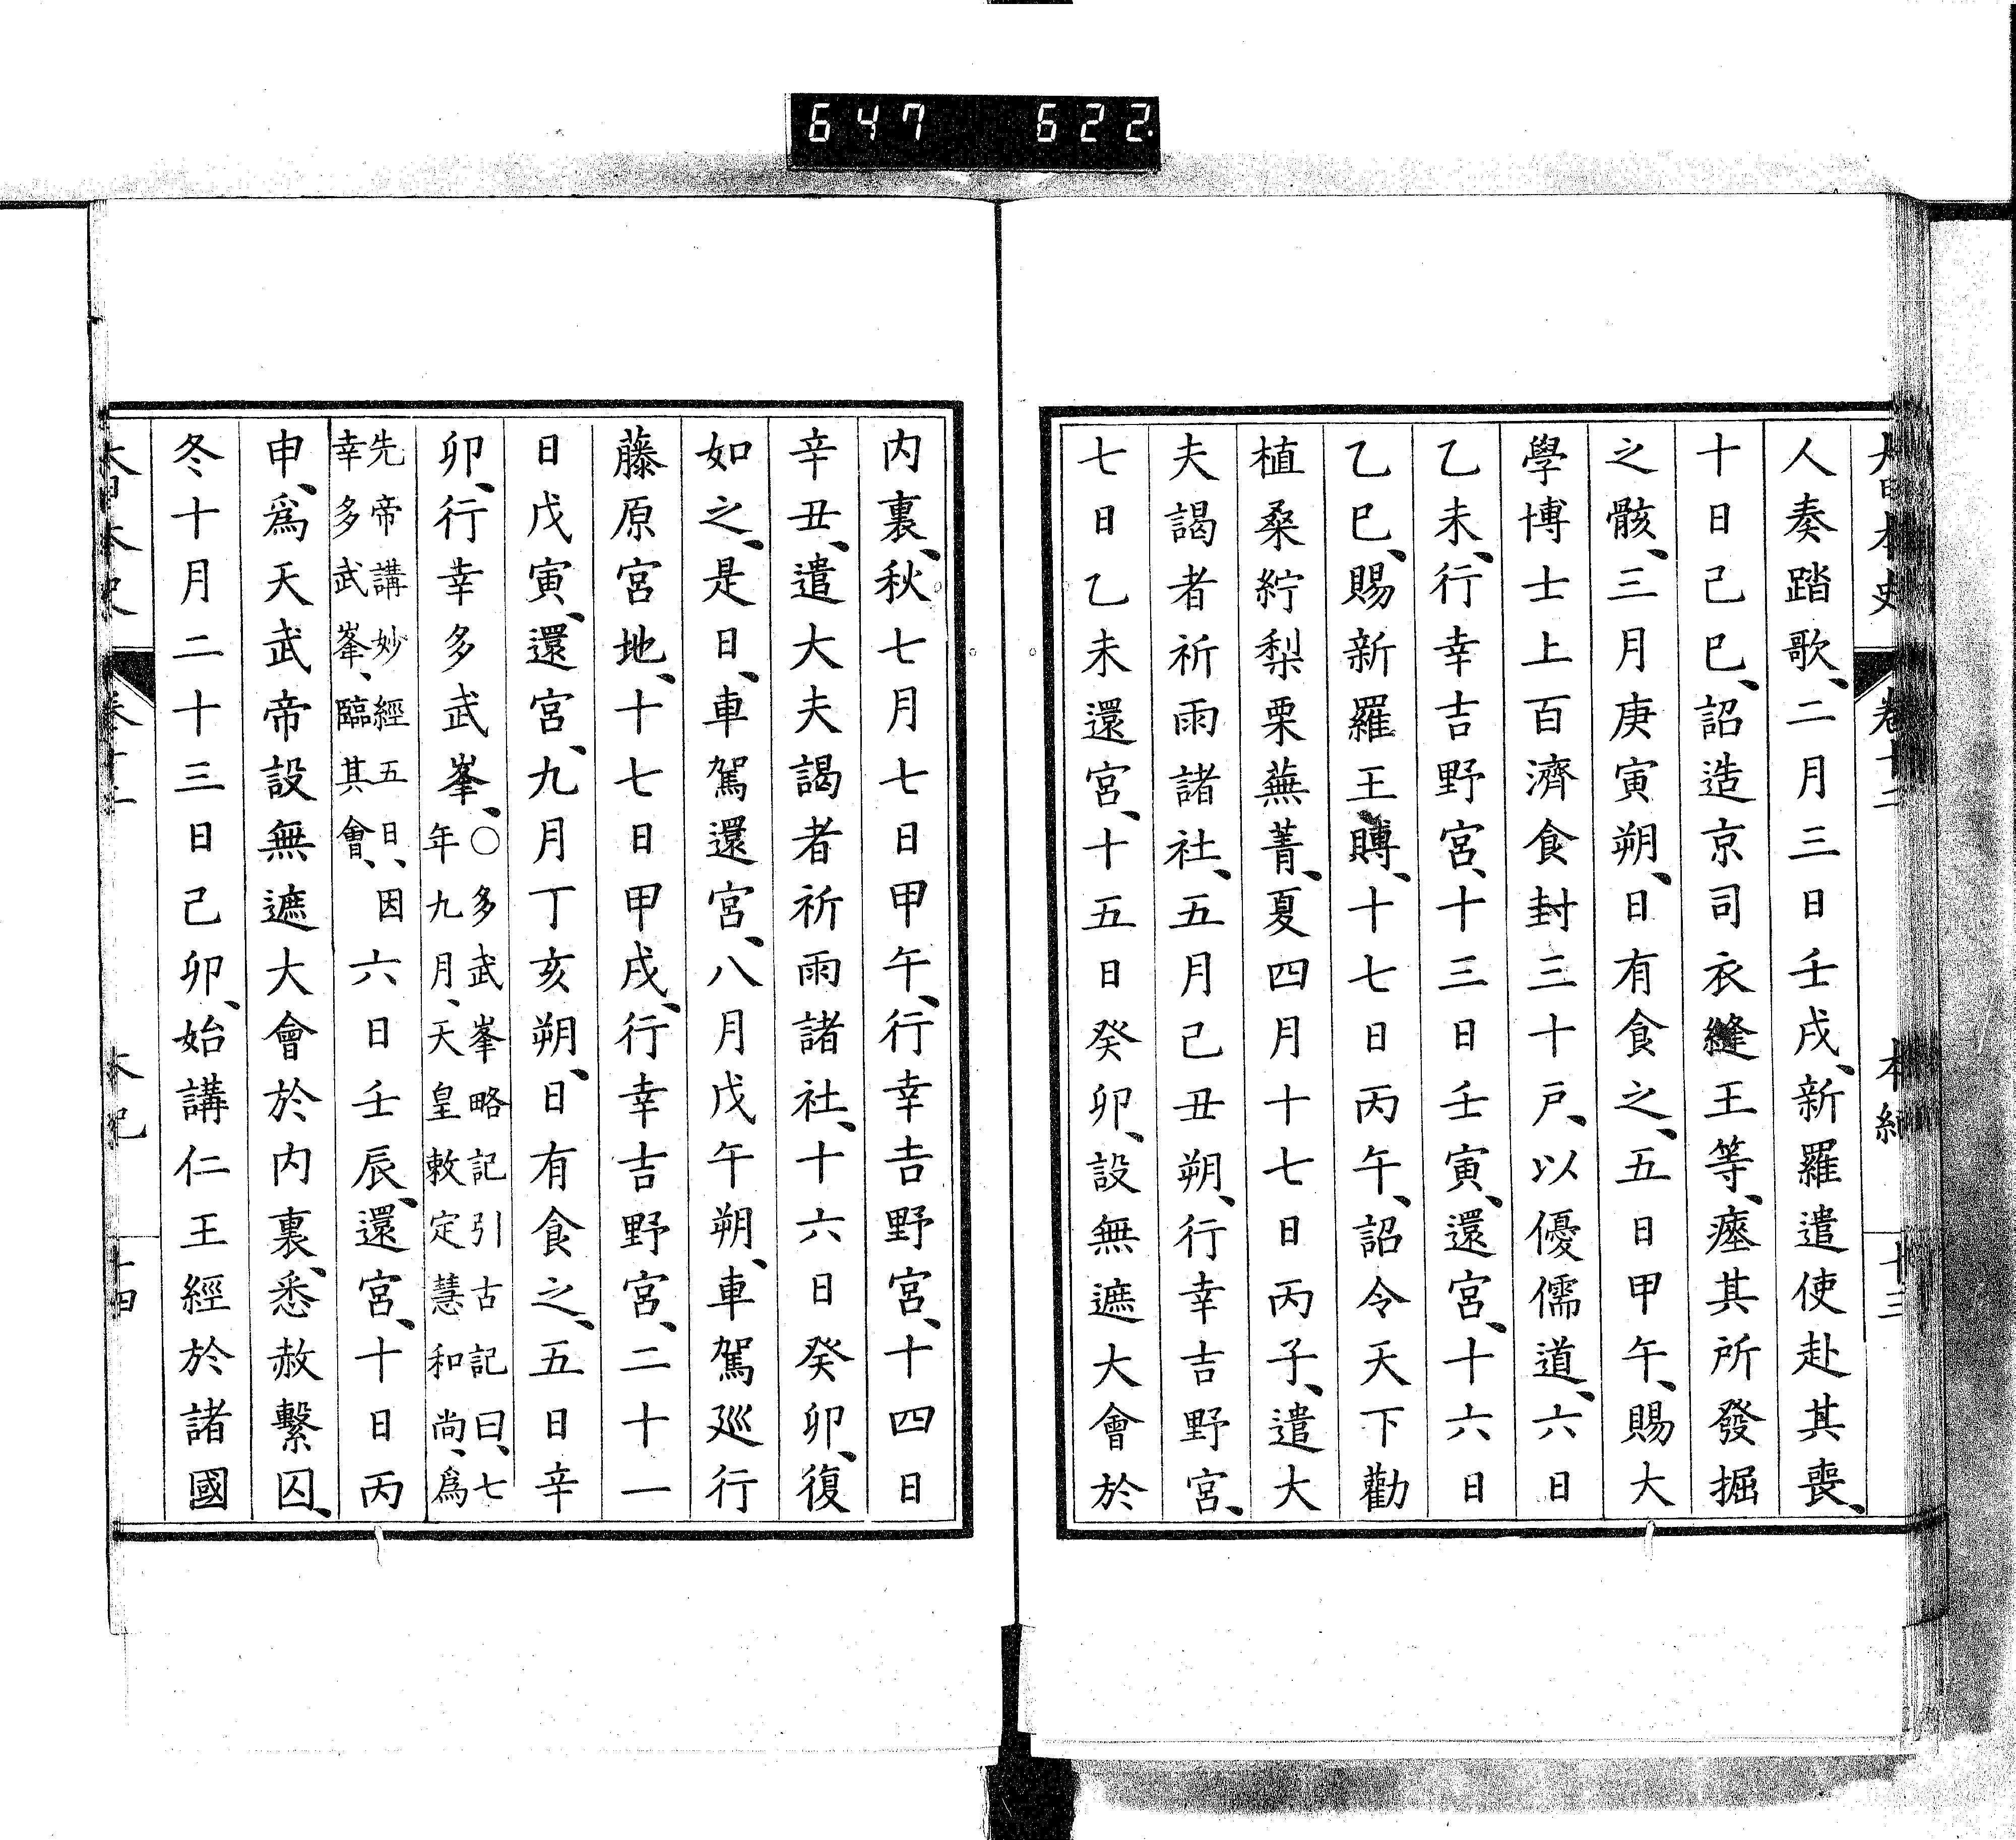 647 622
大日本史 卷十二 本紀 十三
人奏踏歌、二月三日壬戌、新羅遣使赴其喪、
十日己巳、詔造京司衣縫王等、瘞其所發掘
之骸、三月庚寅朔、日有食之、五日甲午、賜大
學博士上百濟食封三十戶、以優儒道、六日
乙未、行幸吉野宮、十三日壬寅、還宮、十六日
乙巳、賜新羅王賻、十七日丙午、詔令天下勸
植桑紵梨栗蕪菁、夏四月十七日丙子、遣大
夫謁者祈雨諸社、五月己丑朔、行幸吉野宮、
七日乙未還宮、十五日癸卯、設無遮大會於
内裏、秋七月七日甲午、行幸吉野宮、十四日
辛丑、遣大夫謁者祈雨諸社、十六日癸卯、復
如之、是日、車駕還宮、八月戊午朔、車駕巡行
藤原宮地、十七日甲戌、行幸吉野宮、二十一
日戊寅、還宮、九月丁亥朔、日有食之、五日辛
卯、行幸多武峯、○多武峯略記引古記曰、七
年九月、天皇敕定慧和尚、爲
先帝講妙經五日、因
幸多武峯、臨其會、
六日壬辰、還宮、十日丙
申、爲天武帝設無遮大會於内裏、悉赦繫囚、
冬十月二十三日己卯、始講仁王經於諸國
大日本史 卷十二 本紀 十四